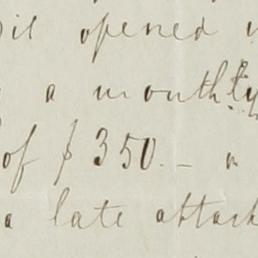 opened
a monthly
of $350.— a
a late attach